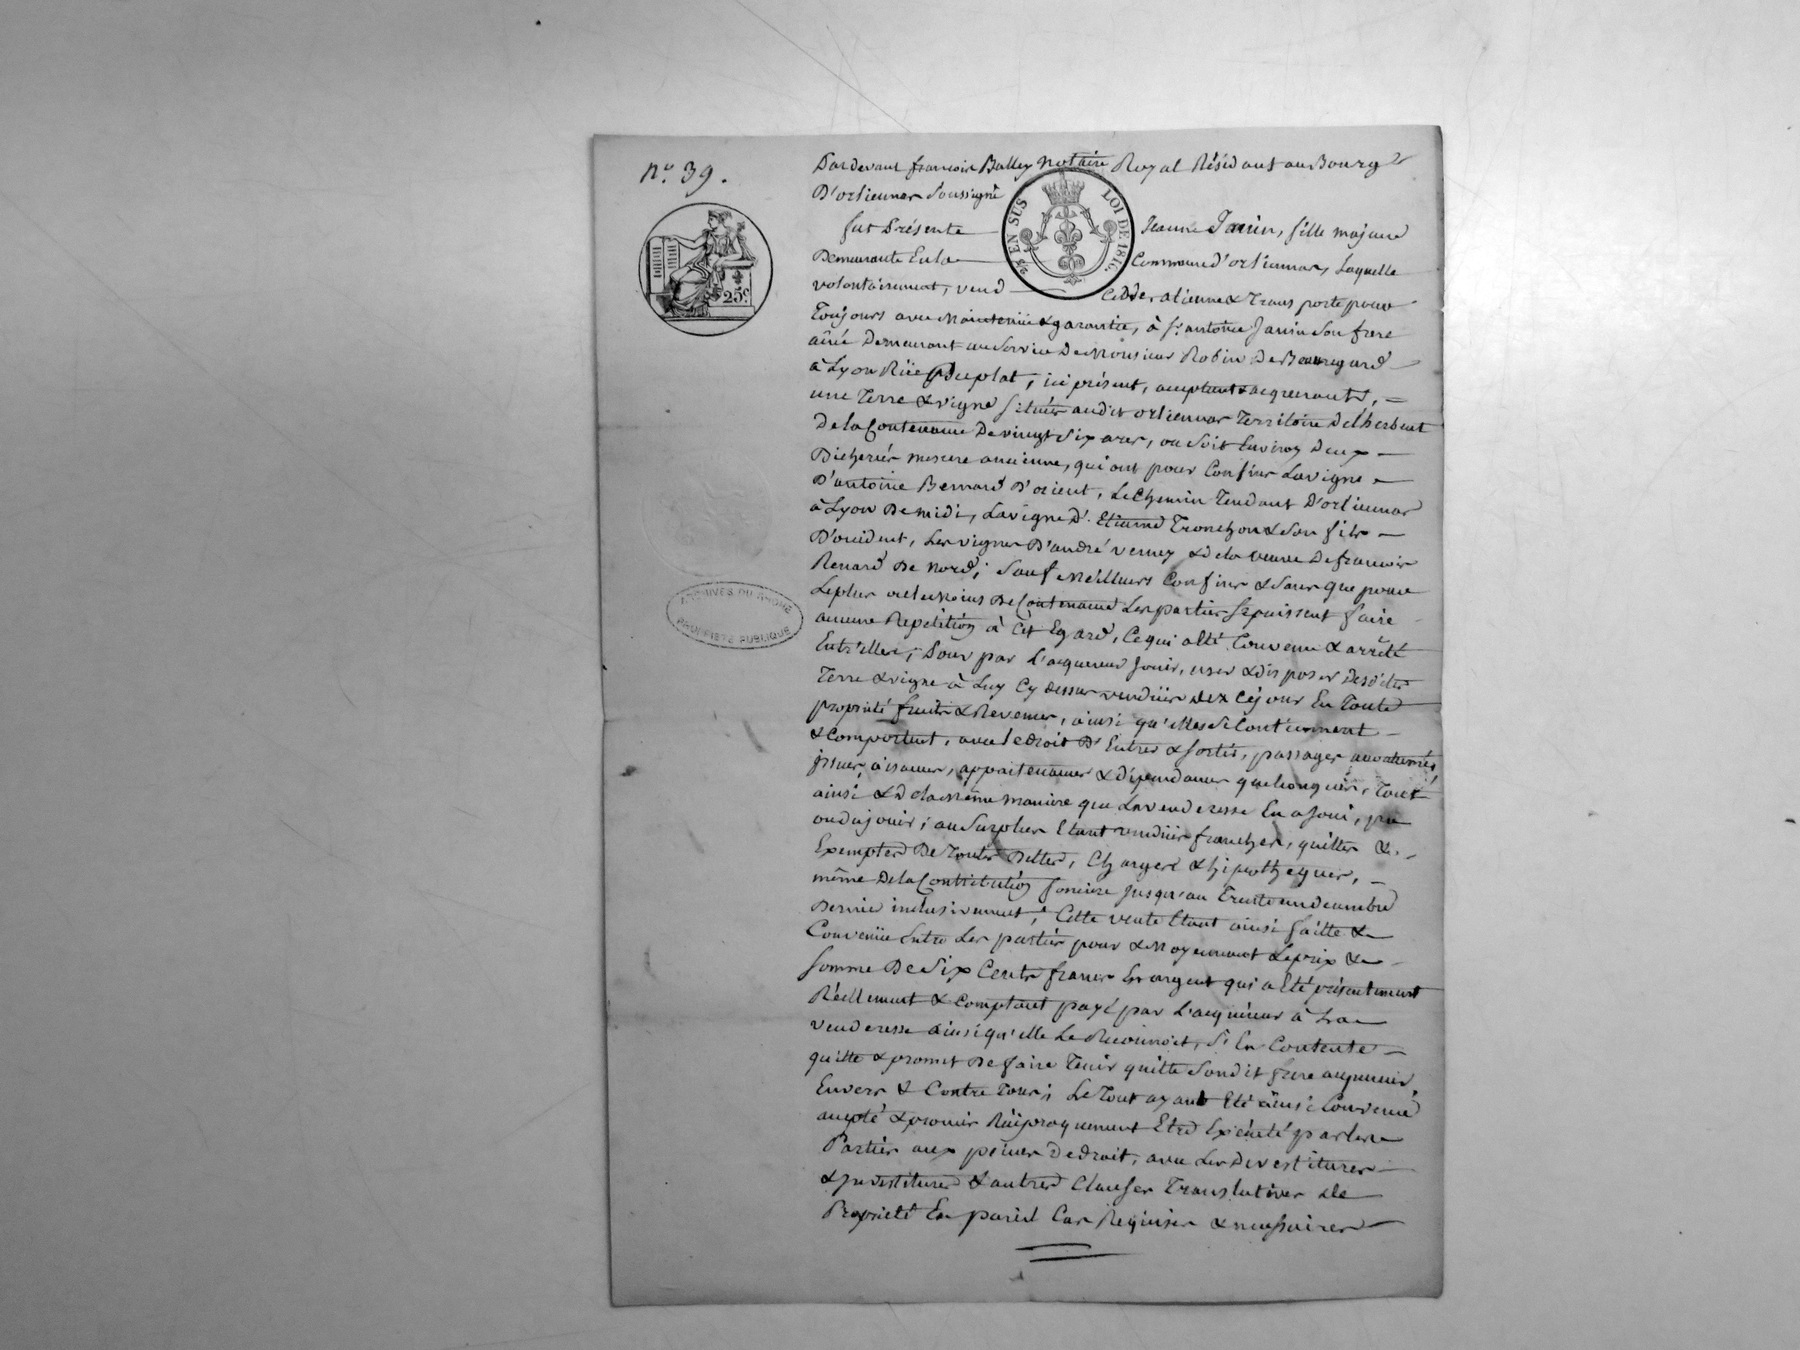 n.° 39.
Pardevant françois Balley notaire Royal Résidant au Bourg
D'orliennas soussigné
fut Présente Jeanne Janin, fille majeure
Demeurante En la Commune d'orliennas, Laquelle
volontairement, vend Cedde, aliène & Transporte pour
Toujours avec Maintenüe & garantie, à S.r antoine Janin Son frere
ainé Demeurant au Service De Monsieur Robin De Beauregard
à Lyon Rüe Duplat, ici présent, acceptant & acquerant,
une Terre & vigne Situées audit orliennas Territoire De
De la Contenance De vingt Six ares, ou Soit Environ Deux
Bicherées mesure ancienne, qui ont pour Confins La vigne
D'antoine Bernard D'orient, Le Chemin Tendant D'orliennas
à Lyon De midi, La vigne D'Etienne Tronchon & Son fils
D'occident, Les vignes D'andré verney & de la veuve De françois
Renard De Nord; Sauf Meilleurs Confins & Sans que pour
Le plus ou le Moins De Contenance Les parties Se puissent faire
aucune Repétition à Cet Egard, Ce qui a été Convenu & arrêté
Entr'elles; Pour par L'acquereur Jouir, user & disposer Desdites
Terre & vigne à Luy Cy dessus vendües dez Ce jour En Toute
propriété fruits & Revenus, ainsi qu'elles Se Contiennent
& Comportent, avec le droit D'Entrer & Sortir, passages accoutumés
issues, aisances, appartenances & dépendances quelconques, Tout
ainsi & De la Même maniere que La venderesse En a Joui, pu
ou du jouir; au Surplus Etant vendües franches, quittes &
Exemptes De Toutes Dettes, Charges & hipotheques,
même De la Contribution fonciere Jusqu'au Trente un décembre
Dernier inclusivement; Cette vente Etant ainsi faitte &
Convenüe Entre Les parties pour & Moyennant Le prix &
Somme De Six Cents francs En argent qui a Eté présentement
Réellement & Comptant payé par L'acquéreur à La
venderesse ainsi qu'elle Le Reconnoit, S'En Contente
quitte & promet De faire Tenir quitte Sondit frere acquereur
Envers & Contre Tous; Le Tout ayant Eté ainsi Convenu
accepté & promis Réciproquement Etre Exécuté par Les
Parties aux peines De droit, avec Les Devestitures
& Investitures & autres Clauses Translatives De
Propriété En pareil Cas Requises & necessaires
25.c
2/5 EN SUS LOI DE 1816.
ARCHIVES DU RHÔNE
PROPRIÉTÉ PUBLIQUE